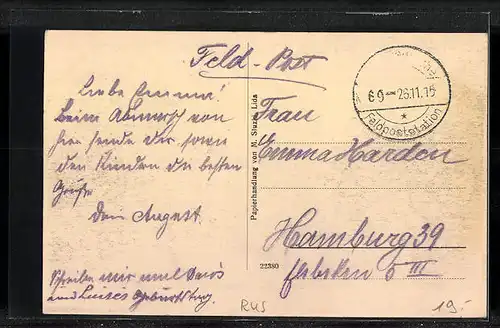 Feld-Post
Liebe Emma!
Beim Abmarsch von
hier sende dir sowie
den Kindern die besten
Grüße
Dein August.
Schreiben mir mal
und Luises Geburtstag.
Papierhandlung von M. Stuzin, Lida
22380
69-26.11.15
*
Feldpoststation
Frau
Emma Harden
Hamburg 39
5 III
RUS
19.-